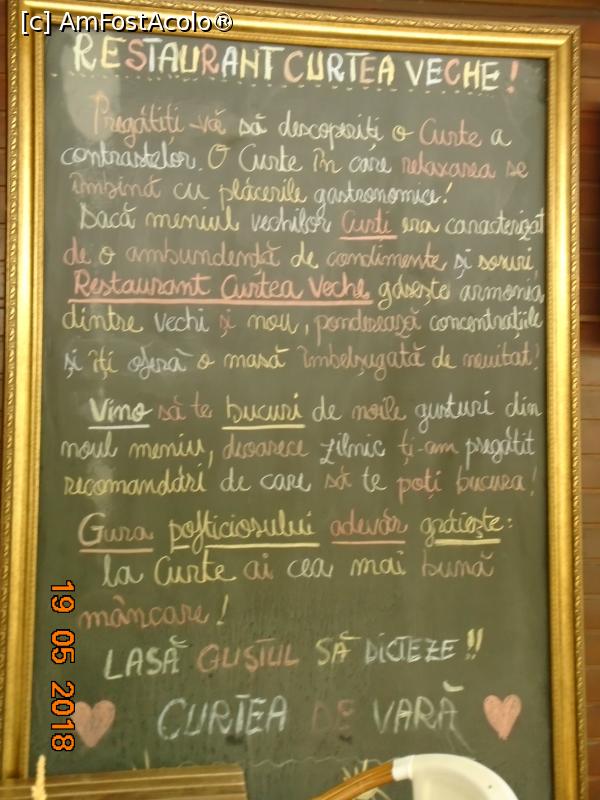 [c] AmFostAcolo®
RESTAURANT CURTEA VECHE!
Pregătiți-vă să descoperiți o Curte a
contrastelor. O Curte în care relaxarea se
îmbină cu plăcerile gastronomice!
Dacă meniul vechilor Curți era caracterizat
de o ambundență de condimente și sosuri,
Restaurant Curtea Veche găsește armonia
dintre vechi și nou, ponderează concentrațiile
și îți oferă o masă îmbelșugată de neuitat!
Vino să te bucuri de noile gusturi din
noul meniu, deoarece zilnic ți-am pregătit
recomandări de care să te poți bucura!
Gura pofticiosului adevăr grăiește:
la Curte ai cea mai bună
mâncare!
LASĂ GUSTUL SĂ DICTEZE!!
CURTEA DE VARĂ
19 05 2018